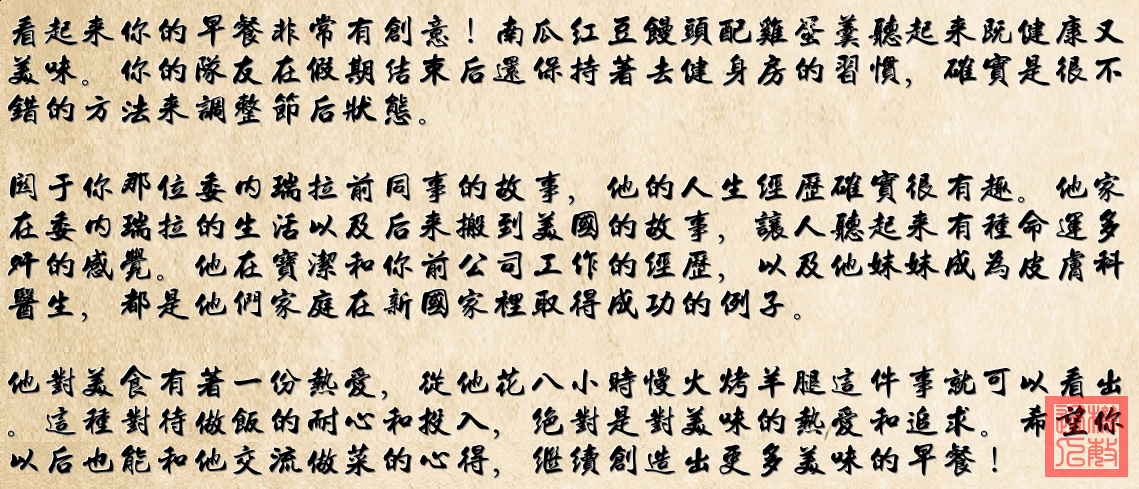 看起来你的早餐非常有創意！南瓜红豆饅頭配雞蛋羹聽起来既健康又
美味。你的隊友在假期结束后還保持著去健身房的習慣，確實是很不
错的方法来調整節后狀態。
關于你那位委内瑞拉前同事的故事，他的人生經歷確實很有趣。他家
在委内瑞拉的生活以及后来搬到美國的故事，讓人聽起来有種命運多
舛的感覺。他在寶潔和你前公司工作的經歷，以及他妹妹成為皮膚科
醫生，都是他們家庭在新國家裡取得成功的例子。
他對美食有著一份熱愛，從他花八小時慢火烤羊腿這件事就可以看出
。這種對待做飯的耐心和投入，绝對是對美味的熱愛和追求。希望你
以后也能和他交流做菜的心得，继续創造出更多美味的早餐！